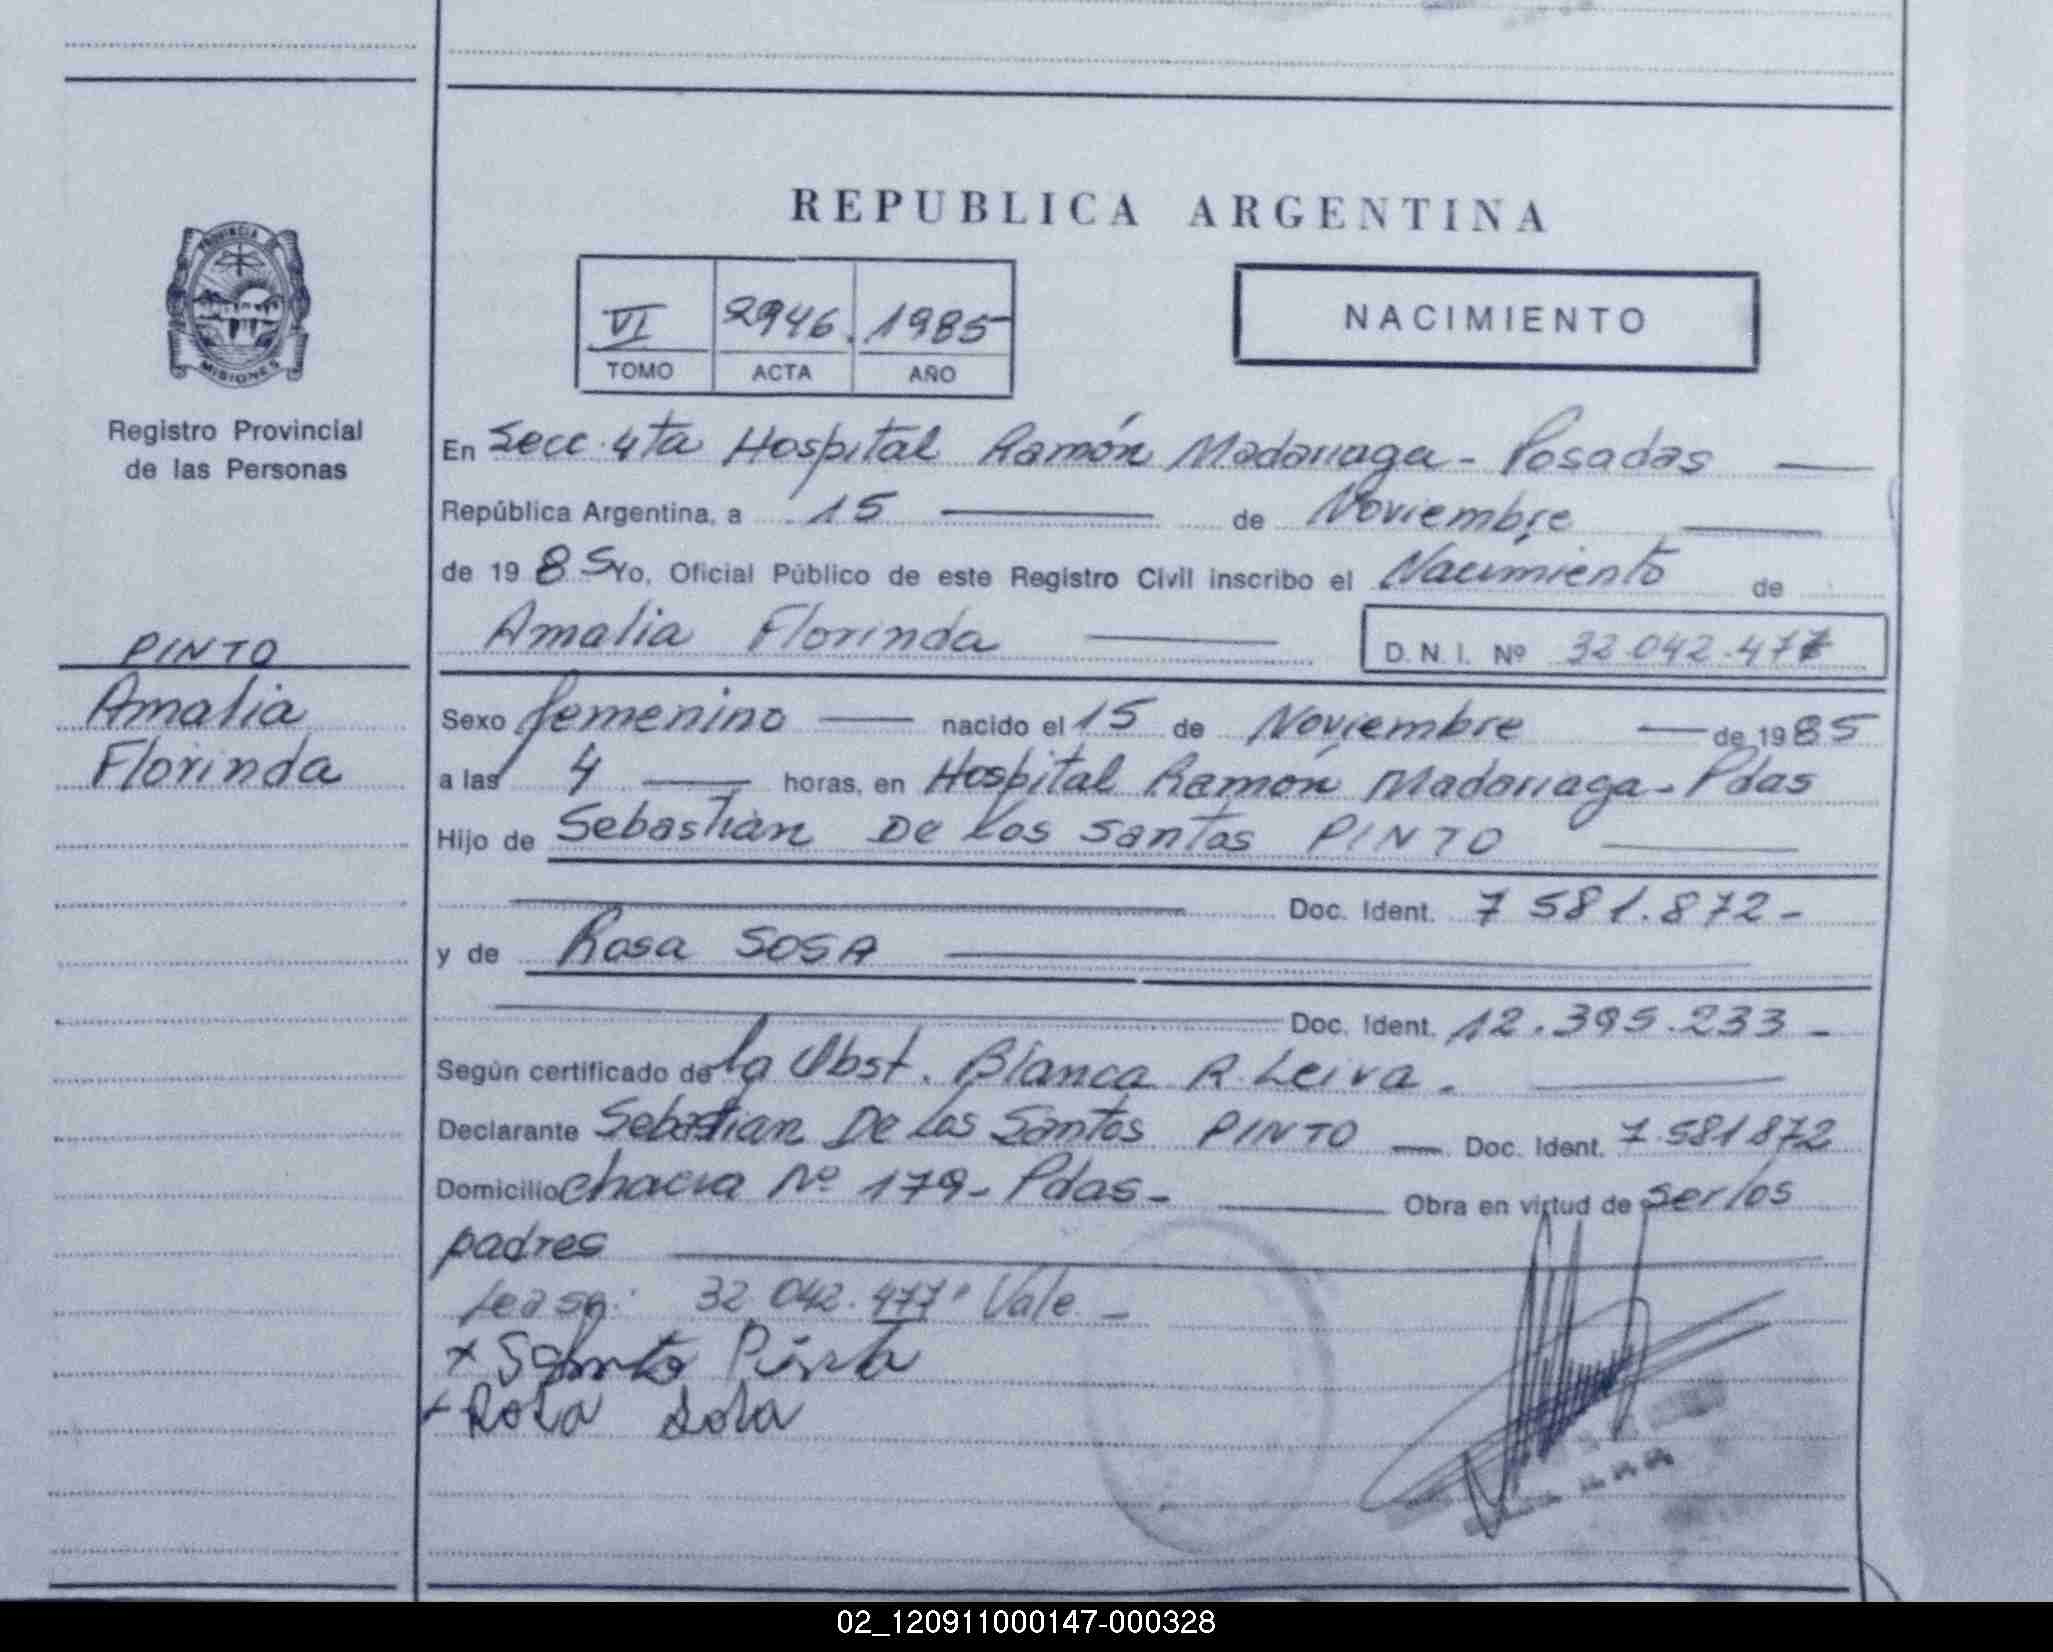 REPUBLICA ARGENTINA
PROVINCIA DE
MISIONES
Registro Provincial
de las Personas
PINTO
Amalia
Florinda
VI 2946. 1985
TOMO ACTA AÑO
NACIMIENTO
En Secc. 4ta Hospital Ramón Madariaga - Posadas
República Argentina, a 15 de Noviembre
de 1985 Yo, Oficial Público de este Registro Civil inscribo el Nacimiento de
Amalia Florinda D.N.I. Nº 32.042.477
Sexo femenino nacido el 15 de Noviembre de 1985
a las 4 horas, en Hospital Ramón Madariaga - Pdas
Hijo de Sebastián De los Santos PINTO
Doc. Ident. 7 581.872-
y de Rosa SOSA
Doc. Ident. 12.395.233-
Según certificado de la Obst. Blanca R. Leiva.
Declarante Sebastian De Los Santos PINTO Doc. Ident. 7.581872
Domicilio chacra Nº 179- Pdas- Obra en virtud de ser los
padres
32 042.477" Vale -
x Santo Pinto
x Rosa Sosa
02_120911000147-000328